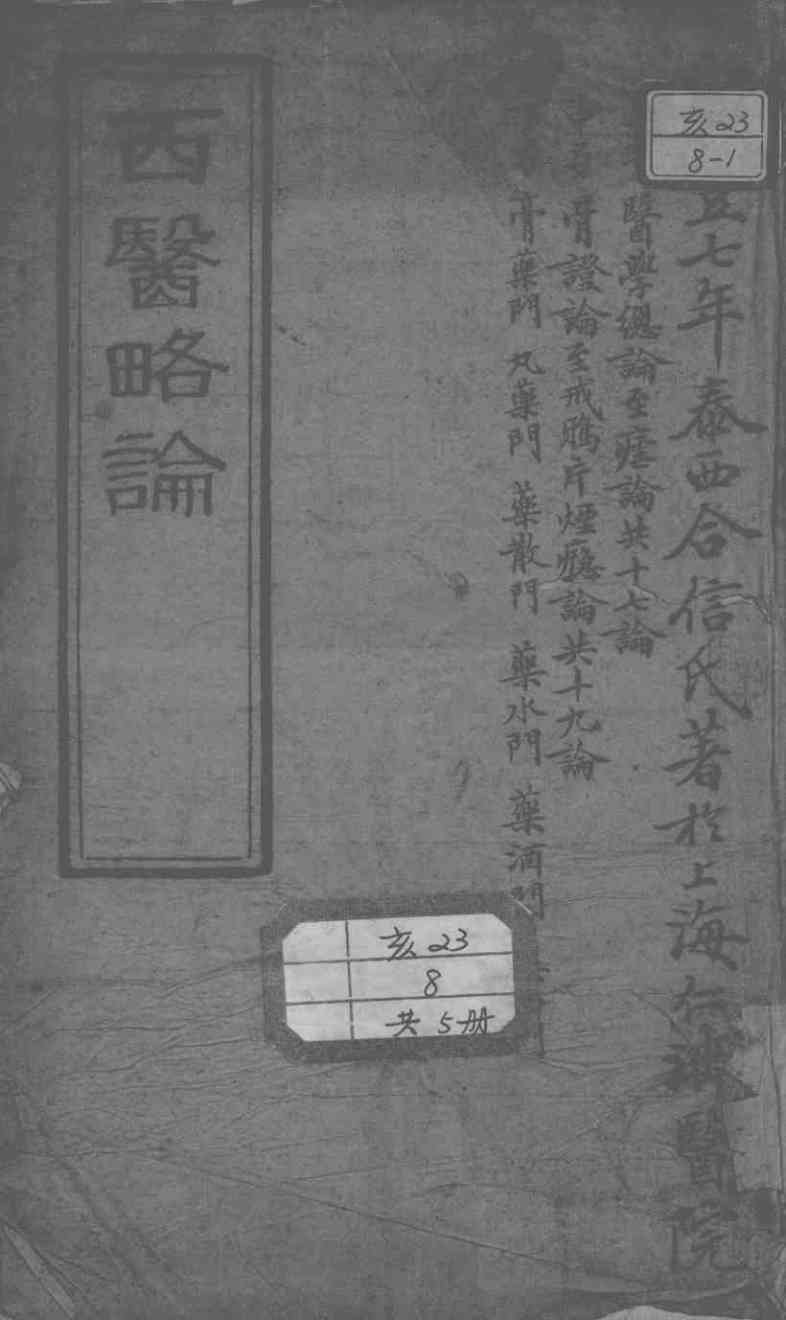 亥23
8-1
五七年泰西合信氏著於上海仁濟醫院
醫學總論至瘧論共十七論
骨證論至戒鴉片煙癮論共十九論
膏藥門 丸藥門 藥散門 藥水門 藥酒門
西醫略論
亥23
8
共5册